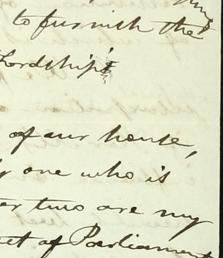 to furnish the
Lordship's
of our house,
one who is
two are my
of Parliament